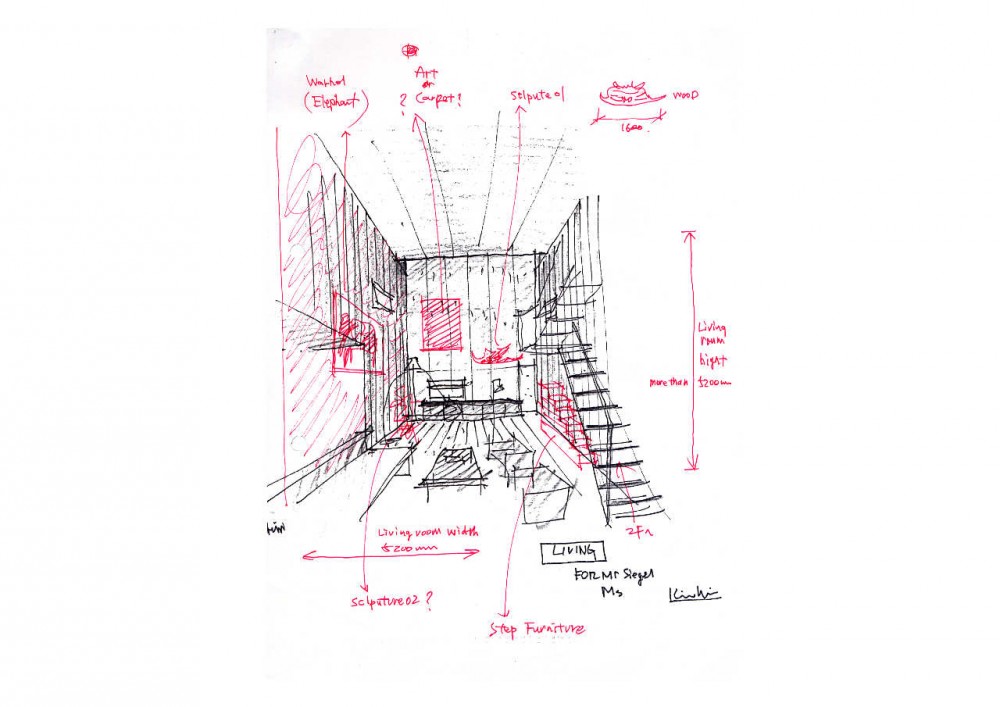 Warhol
(Elephant)
Art
or
? Carpet?
Sclputre 01
WOOD
1600
Living
room
hight
more than 5200mm
Living room width
5200mm
2Fへ
LIVING
FOR Mr Siegel
Ms
sclputure 02 ?
Step Furniture